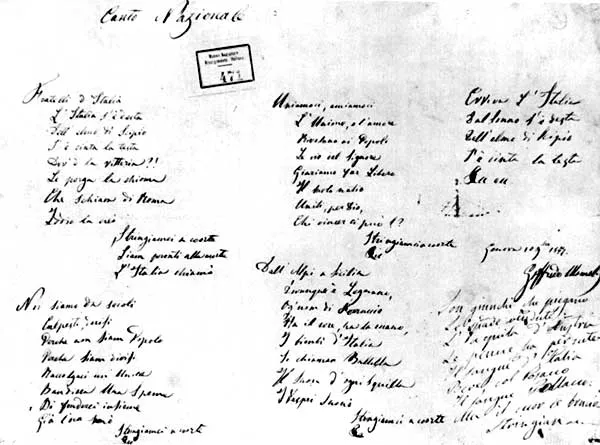 Canto Nazionale
471
Fratelli d'Italia
L'Italia s'è desta
Dell'elmo di Scipio
S'è cinta la testa
Dov'è la vittoria?!
Le porga la chioma
Che schiava di Roma
Iddio la creò
Stringiamci a coorte
Siam pronti alla morte
L'Italia chiamò
Noi siamo da secoli
Calpesti, derisi
Perché non siam Popolo
Perché siam divisi
Raccolgaci un'Unica
Bandiera una Speme
Di fonderci insieme
Già l'ora suonò
Stringiamci a coorte
Uniamoci, amiamoci
L'Unione, e l'amore
Rivelano ai Popoli
Le vie del Signore
Giuriamo far Libero
Il suolo natio
Uniti, per Dio,
Chi vincer ci può!?
Stringiamci a coorte
Dall'Alpi a Sicilia
Dovunque è Legnano,
Ogn'uom di Ferruccio
Ha il core, ha la mano,
I bimbi d'Italia
Si chiaman Balilla
Il Suon d'ogni squilla
I Vespri Suonò
Stringiamci a coorte
Evviva l'Italia
Dal sonno s'è desta
Dell'elmo di Scipio
S'è cinta la testa
Genova
Goffredo Mameli
Son giunchi che piegano
Le spade vendute
L'Aquila d'Austria
Le penne ha perdute
Il sangue d'Italia
Bevé, col Cosacco
Il sangue Polacco
Ma il cuor le bruciò
Stringiamci